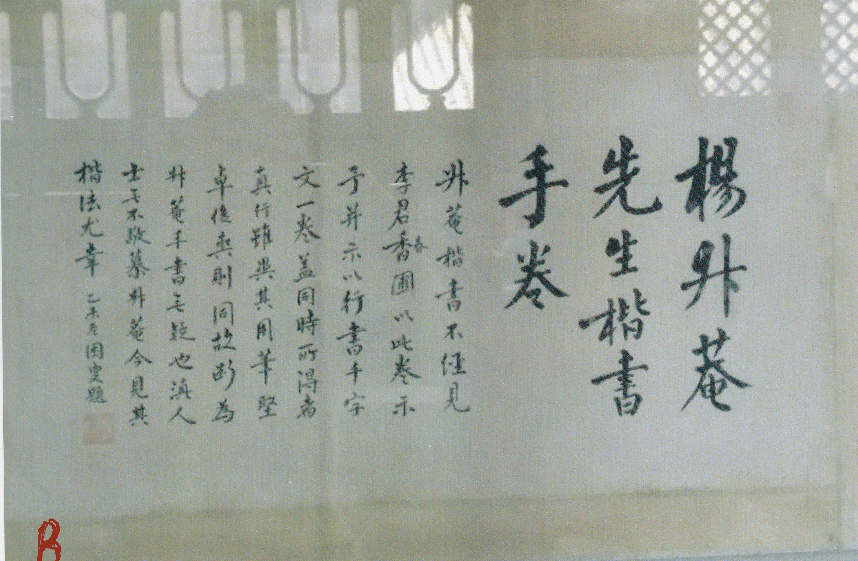 楊升菴
先生楷書
手卷
升菴楷書不經見
李君香春圃以此卷示
予并示以行書千字
文一卷蓋同時所得者
真行雖異其用筆堅
卓俊爽則同故斷為
升菴手書无疑也滇人
士无不敬慕升菴今見其
楷法尤幸 乙未冬困叟題
B